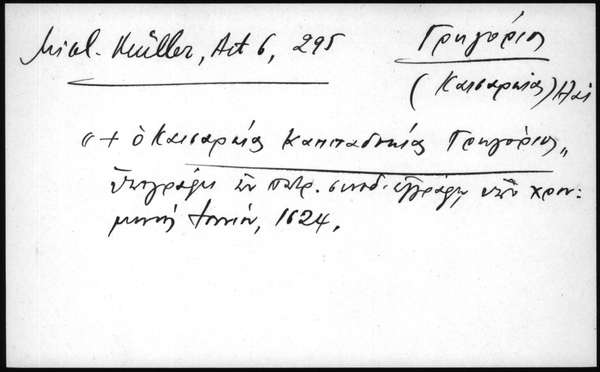 Micl. Müller, Act 6, 295
Γρηγόριος
(Καισαρείας)
"+ ὁ Καισαρείας Καππαδοκίας Γρηγόριος"
ὑπογράφει ἐν πατρ. συνοδ. ἐγγράφῳ ὑπὸ χρον:
μηνὶ Ἰουνίῳ, 1624.